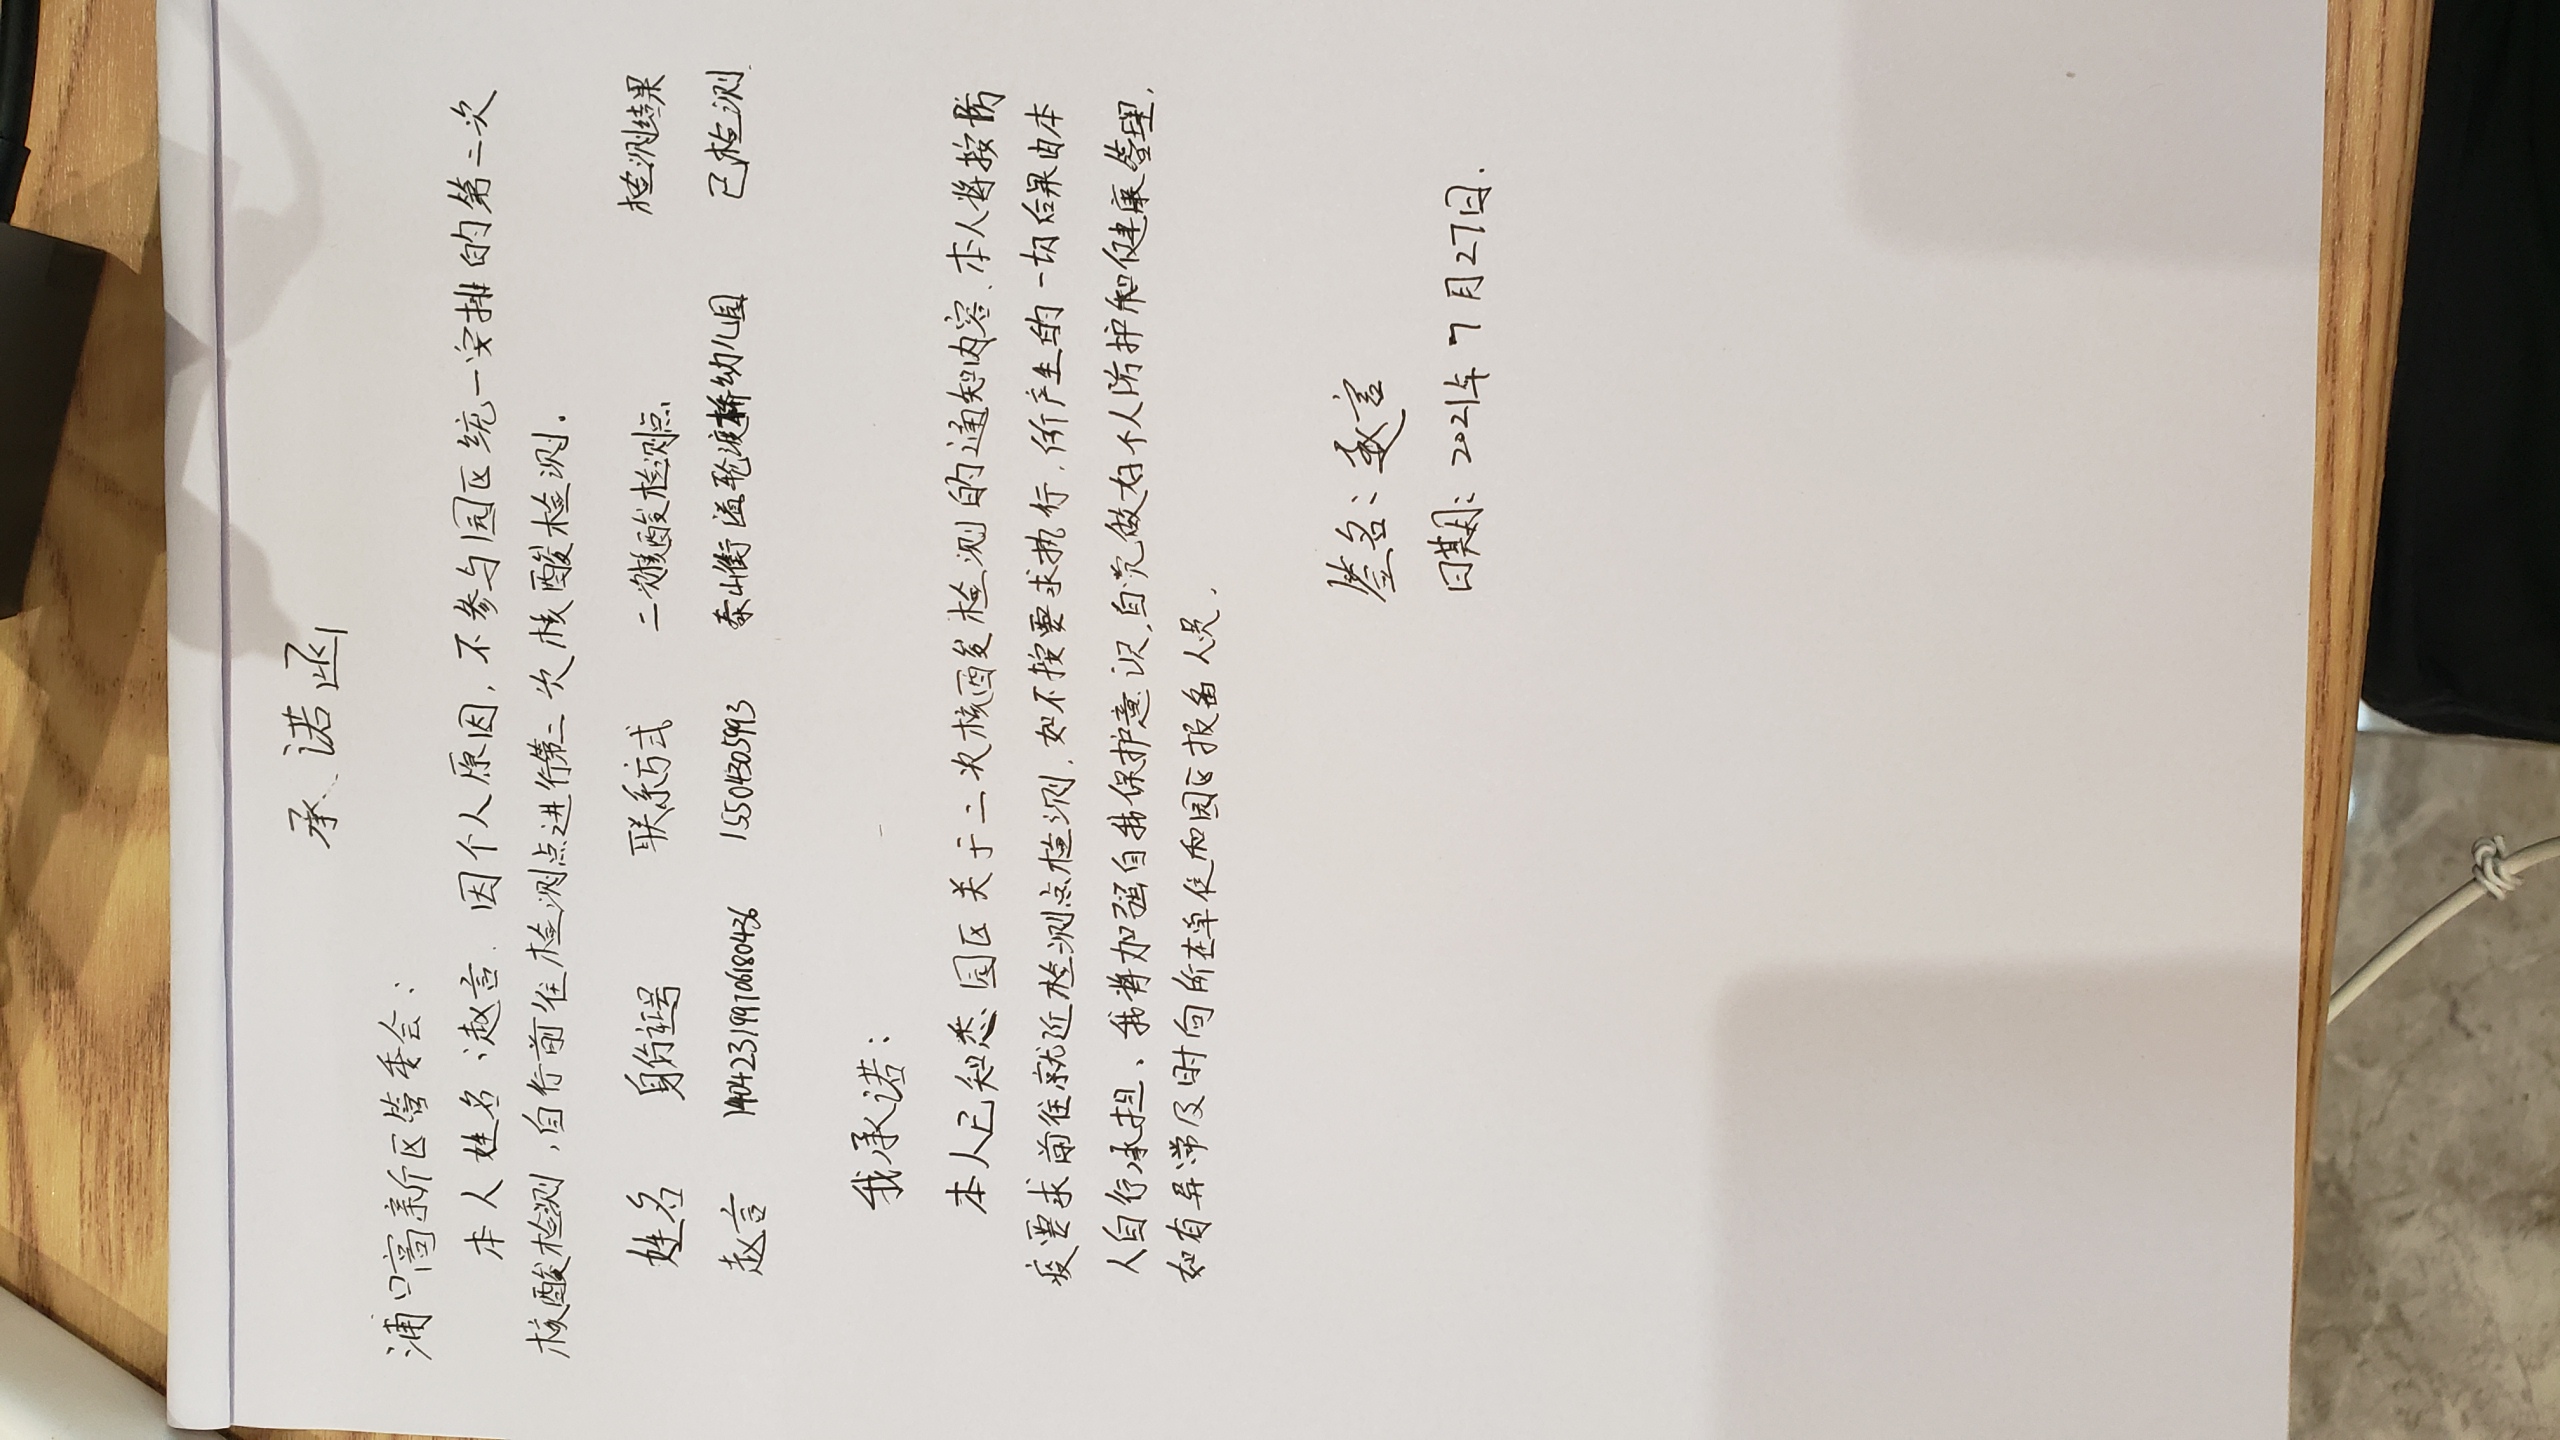 承诺函
浦口高新区管委会：
本人姓名：赵言．因个人原因，不参与园区统一安排的第二次
核酸检测，自行前往检测点进行第二次核酸检测．
姓名 身份证号 联系方式 二次核酸检测点 检测结果
赵言 140423199706180436 15504305993 泰山街道轮渡桥幼儿园 已检测
我承诺：
本人已知悉园区关于二次核酸检测的通知内容．本人将按防
疫要求前往就近检测点检测，如不按要求执行，所产生的一切后果由本
人自行承担、我将加强自我保护意识，自觉做好个人防护和健康管理，
如有异常及时向所在单位和园区报备人员．
签名：赵言
日期：2021年7月27日．